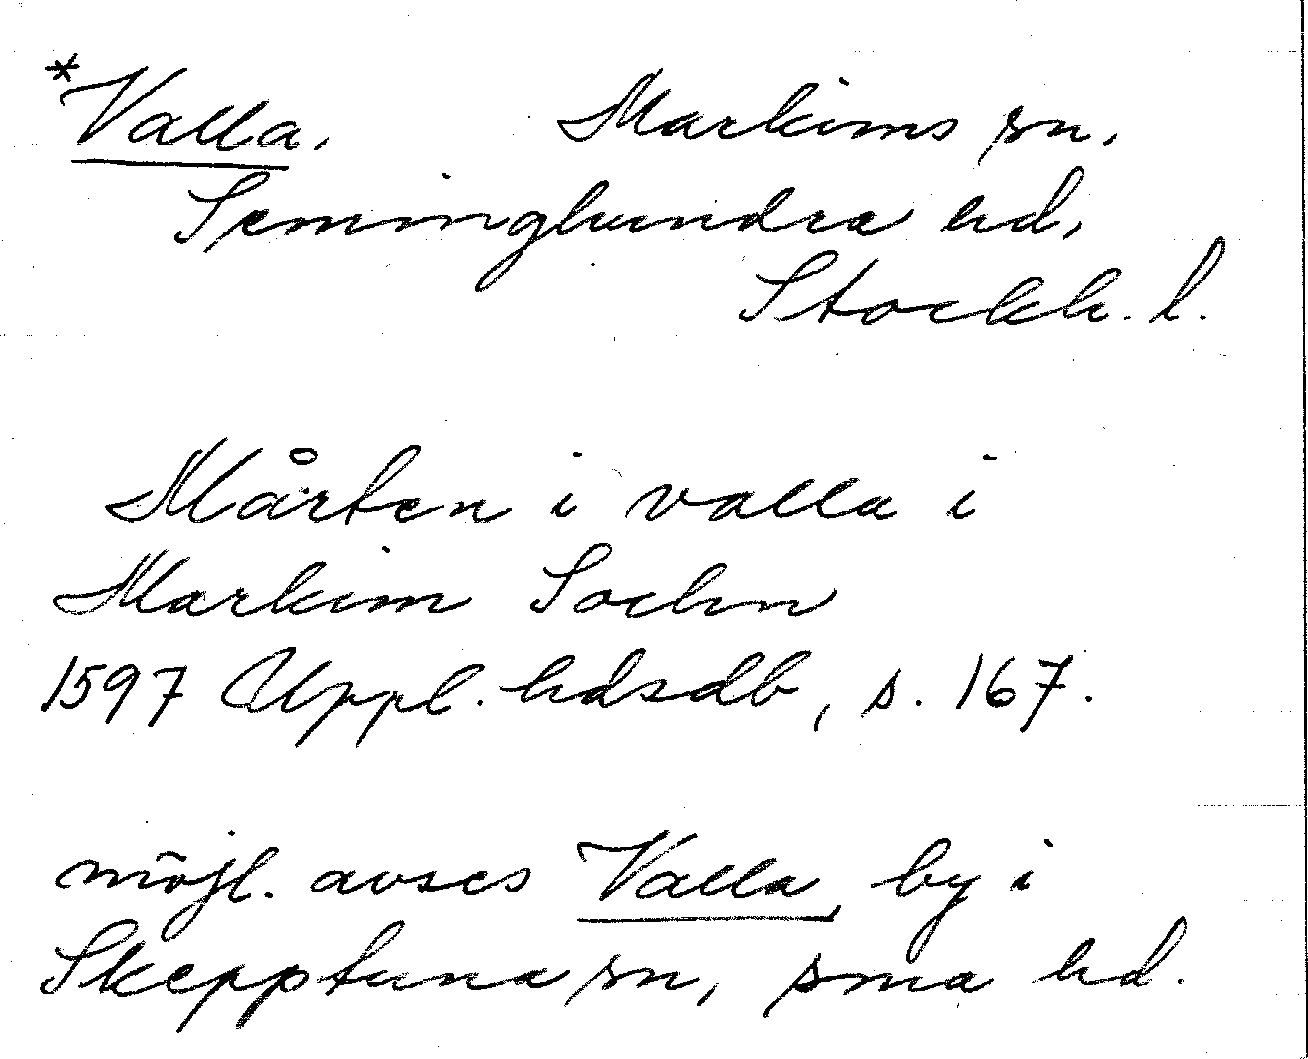 *Valla. Markims sn,
Seminghundra hd,
Stockh. l.
Mårten i valla i
Markim Sochn
1597 Uppl. hdsdb, s. 167.
möjl. avses Valla, by i
Skepptuna sn, sma hd.